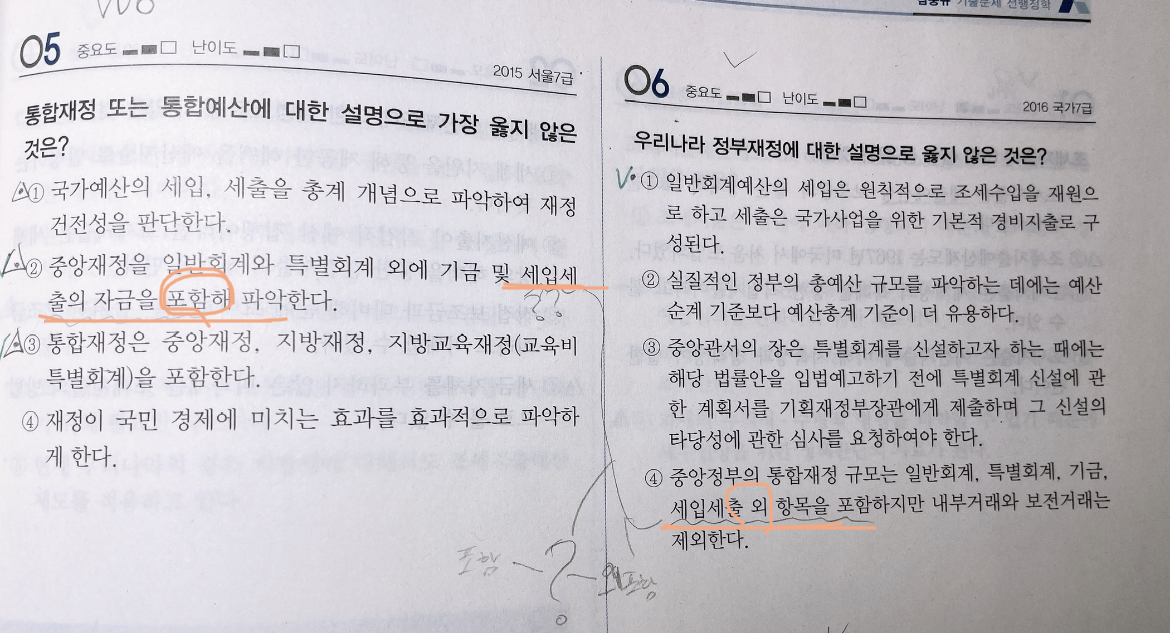 기출문제 선행정학
05 중요도 난이도
2015 서울7급
통합재정 또는 통합예산에 대한 설명으로 가장 옳지 않은
것은?
① 국가예산의 세입, 세출을 총계 개념으로 파악하여 재정
건전성을 판단한다.
② 중앙재정을 일반회계와 특별회계 외에 기금 및 세입세
출의 자금을 포함해 파악한다.
③ 통합재정은 중앙재정, 지방재정, 지방교육재정(교육비
특별회계)을 포함한다.
④ 재정이 국민 경제에 미치는 효과를 효과적으로 파악하
게 한다.
포함 ?
06 중요도 난이도
2016 국가7급
우리나라 정부재정에 대한 설명으로 옳지 않은 것은?
① 일반회계예산의 세입은 원칙적으로 조세수입을 재원으
로 하고 세출은 국가사업을 위한 기본적 경비지출로 구
성된다.
② 실질적인 정부의 총예산 규모를 파악하는 데에는 예산
순계 기준보다 예산총계 기준이 더 유용하다.
③ 중앙관서의 장은 특별회계를 신설하고자 하는 때에는
해당 법률안을 입법예고하기 전에 특별회계 신설에 관
한 계획서를 기획재정부장관에게 제출하며 그 신설의
타당성에 관한 심사를 요청하여야 한다.
④ 중앙정부의 통합재정 규모는 일반회계, 특별회계, 기금,
세입세출 외 항목을 포함하지만 내부거래와 보전거래는
제외한다.